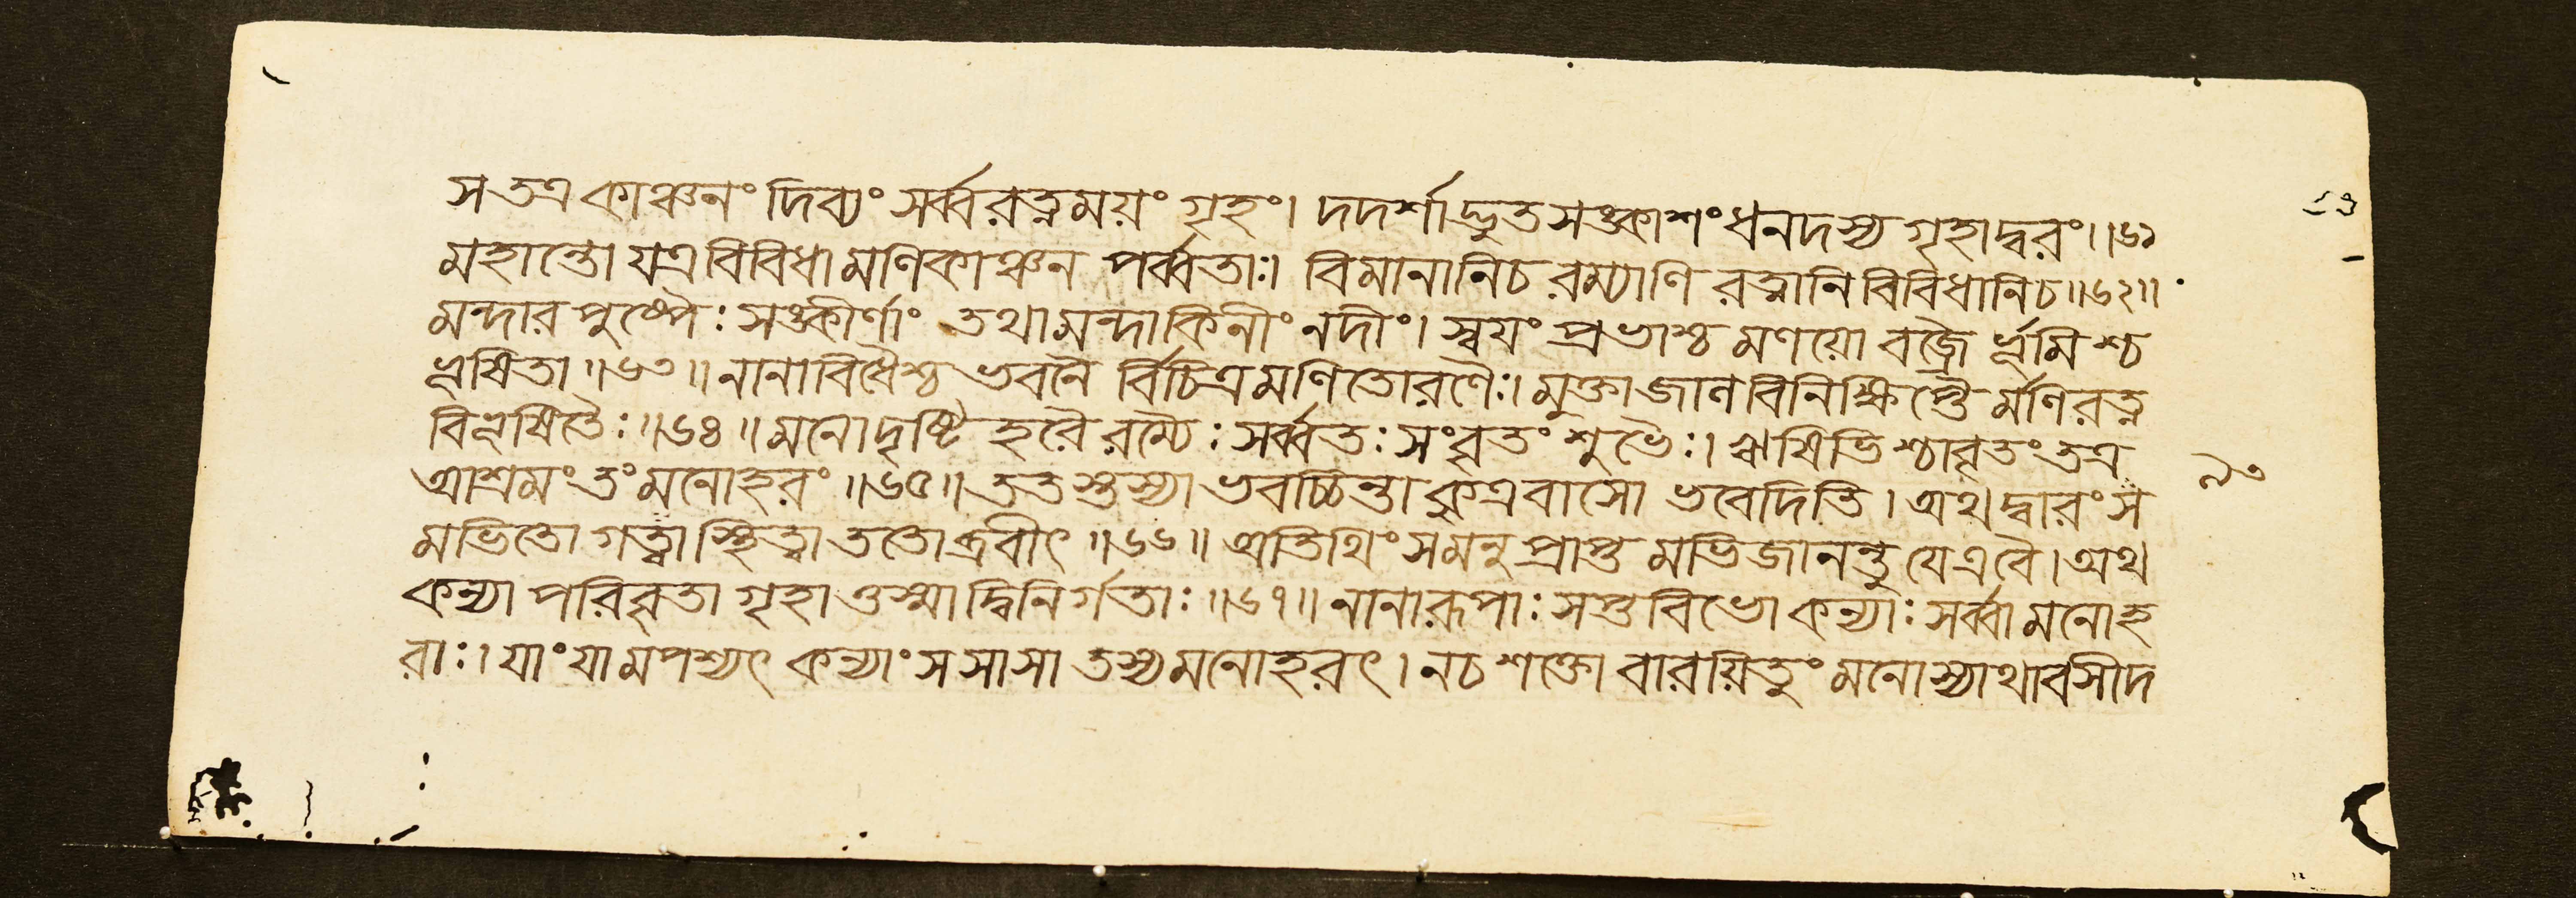 স তত্র কাঞ্চনং দিব্যং সর্ব্বরত্নময়ং গৃহং। দদর্শাদ্ভুতসঙ্কাশং ধনদস্য গৃহাদ্বরং॥৬১
মহান্তো যত্র বিবিধা মণিকাঞ্চন পর্ব্বতাঃ। বিমানানি চ রম্যাণি রত্নানি বিবিধানি চ॥৬২॥
মন্দার পুষ্পৈঃ সঙ্কীর্ণাং তথা মন্দাকিনীং নদীং। স্বয়ং প্রভাশ্চ মণয়ো বজ্রৈ র্ভূমিশ্চ
ভূষিতা॥৬৩॥ নানাবিধৈশ্চ ভবনৈ র্বিচিত্রমণিতোরণৈঃ। মুক্তাজাল বিনিক্ষিপ্তৈ র্মণিরত্ন
বিভূষিতৈঃ॥৬৪॥ মনোদৃষ্টি হরৈ রম্যৈঃ সর্ব্বতঃ সংবৃতং শুভৈঃ। ঋষিভিশ্চাবৃতং তত্র
আশ্রমং তং মনোহরং॥৬৫॥ ততস্তস্যা ভবচ্চিন্তা কুত্র বাসো ভবেদিতি। অথ দ্বারং স
মভিতো গত্বা স্থিত্বা ততোব্রবীৎ॥৬৬॥ অতিথিং সমনুপ্রাপ্ত মভিজানন্তু যেত্র বৈ। অথ
কন্যা পরিবৃতা গৃহাত্তস্মাদ্বিনির্গতাঃ॥৬৭॥ নানারূপাঃ সপ্ত বিভো কন্যাঃ সর্ব্বা মনোহ
রাঃ। যাং যামপশ্যৎ কন্যাং স সা সা তস্য মনোহরৎ। ন চ শক্তো বারয়িতুং মনোস্যাথাবসীদ